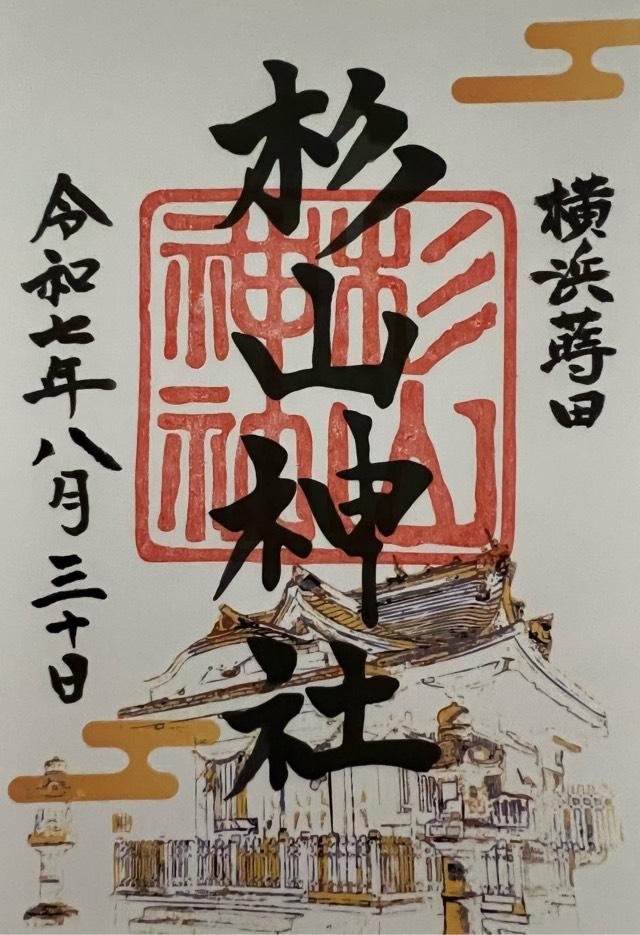 横浜蒔田
杉山神社
杉山
神社
令和七年八月三十日